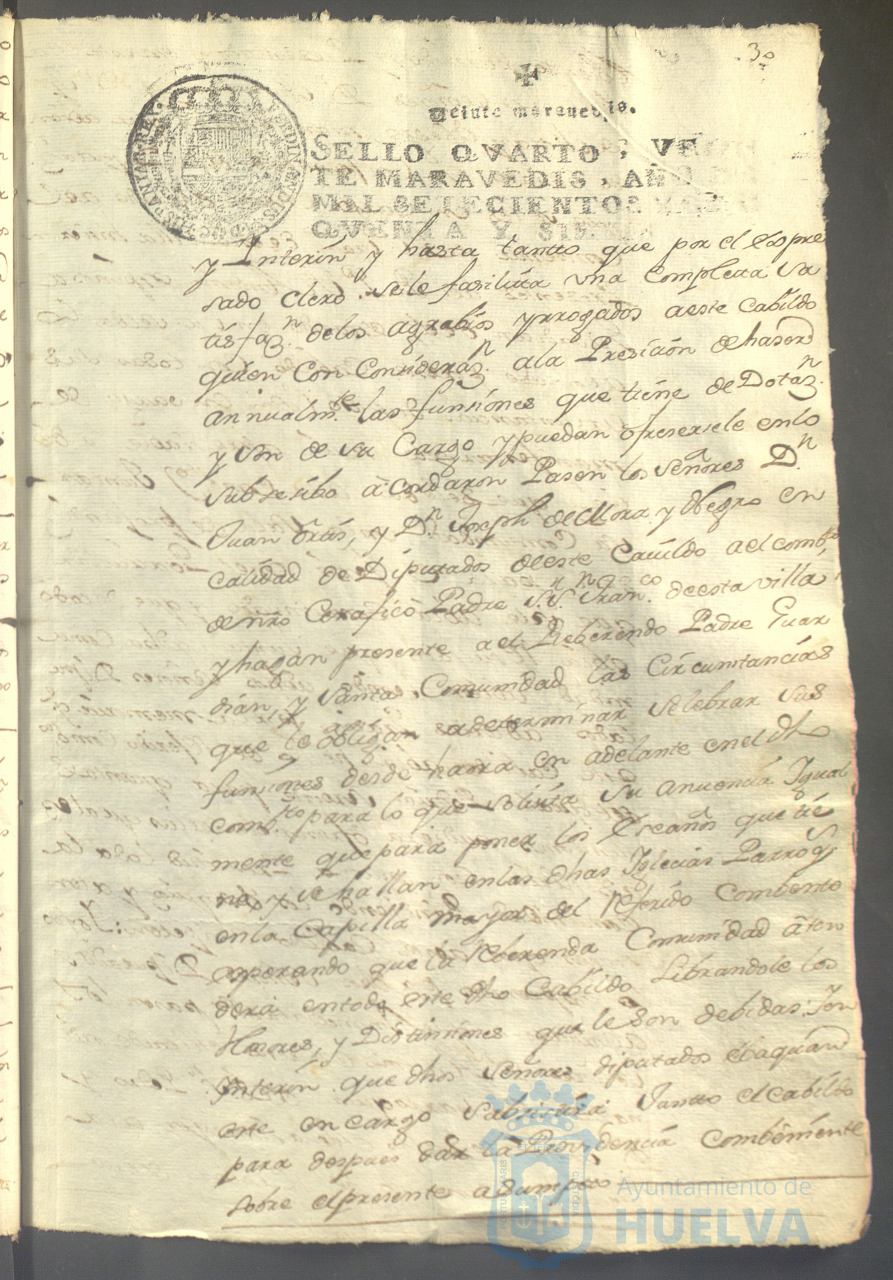 30
Veinte maravedis.
SELLO QVARTO, VE
TE MARAVEDIS, AÑO
MIL SETECIENTOS Y
QVENTA Y SEIS.
y Interin y hasta tantto que por el Expre
sado Clero se le fasilita una Completa Sa
tisfaz.n de los agrabios yrrogados a este Cabildo
quien Con Consideraz.n a la Presicion de haser
annualm.te las funsiones que tiene de Dotaz.n
y son de su Cargo y puedan ofresersele en lo
subsesibo acordaron Pasen los Señores D.n
Juan Ortis, y D.n Joseph de Mora y Negro en
calidad de Diputados de este Cavildo a el comb.to
de nro Cerafico Padre S.r S.n Fran.co de esta villa
y hagan presente a el Reberendo Padre Guar
dian, y Santa Comunidad las Circunstancias
que le obligan a determinar selebrar sus
funsiones desde haora en adelante en el dho
comb.to para lo que solisita su anuencia Igual
mente que para poner los Escaños que tie
ne, y se hallan en las dhas Iglecias Parroq.s
en la Capilla mayor del referido Combento
esperando que la reberenda Comunidad aten
dera en todo a este dho Cabildo Librandole los
Honores, y Distinsiones que le son debidas: Ien
Interin que dhos señores diputados ebaquan
este encargo Subsistira Juntto el cabildo
para despues dar la Providencia Combeniente
sobre el presente asumpto
Ayuntamiento de
HUELVA